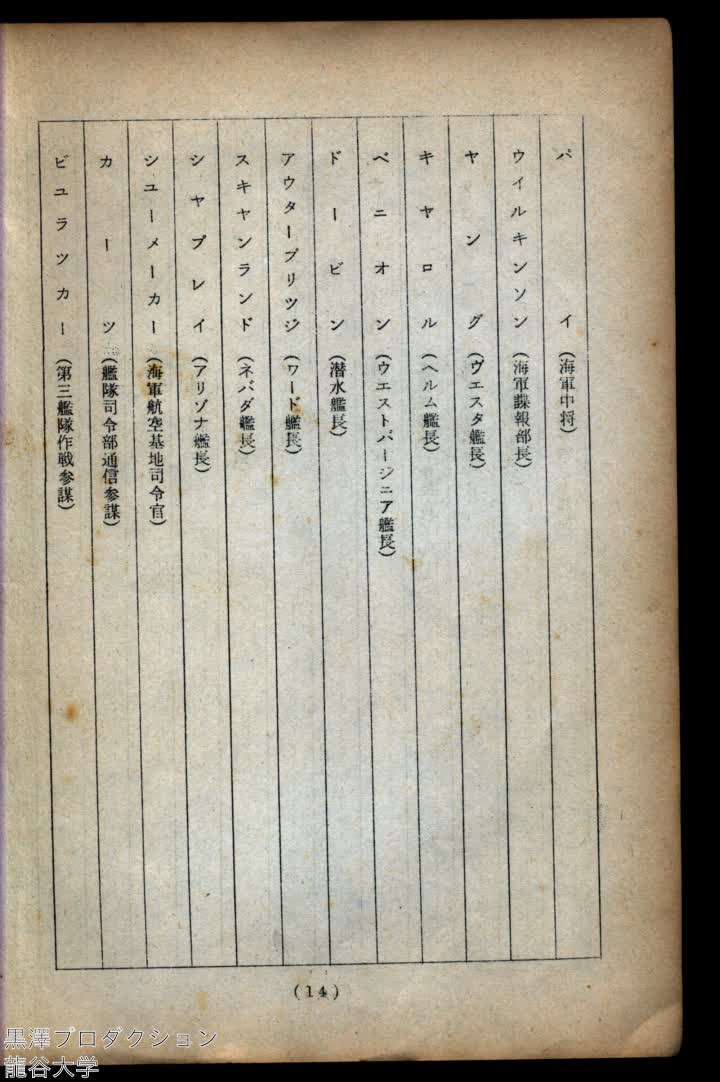 パイ(海軍中将)
ウイルキンソン(海軍諜報部長)
ヤング(ヴエスタ艦長)
キヤロル(ヘルム艦長)
ベニオン(ウエストバージニア艦長)
ドービン(潜水艦長)
アウターブリツジ(ワード艦長)
スキヤンランド(ネバダ艦長)
シヤプレイ(アリゾナ艦長)
シユーメーカー(海軍航空基地司令官)
カーツ(艦隊司令部通信参謀)
ビユラツカー(第三艦隊作戦参謀)
(14)
黒澤プロダクション
龍谷大学